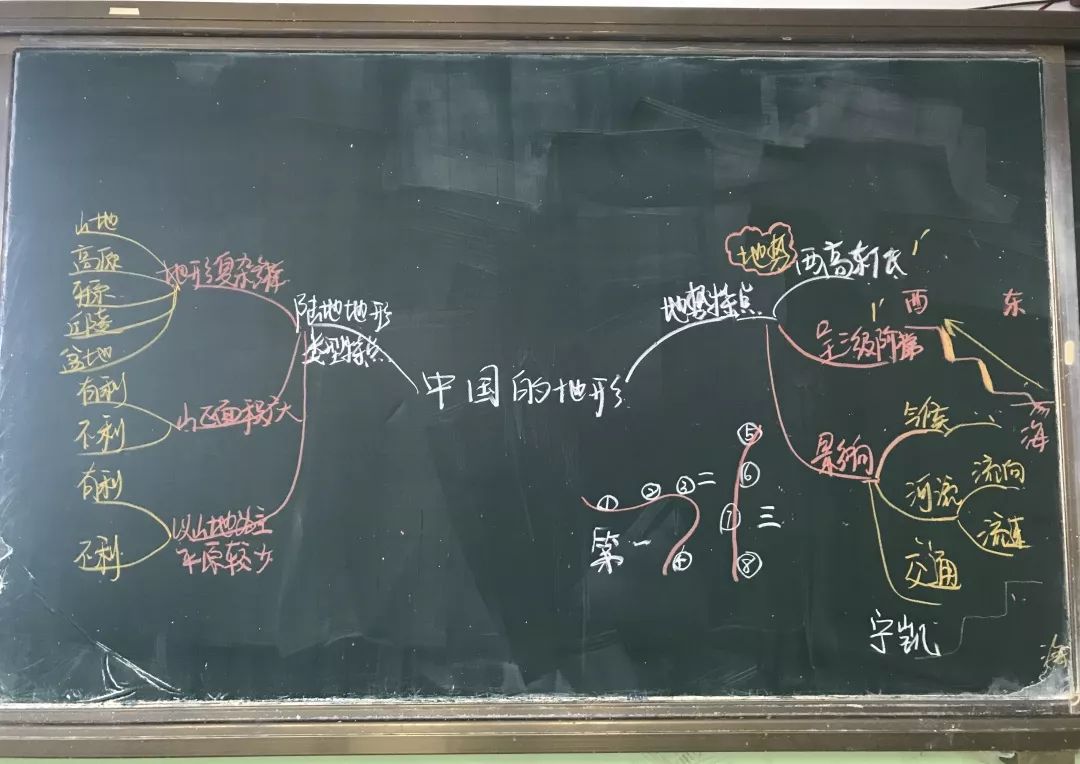 中国的地形
陆地地形
类型特点
地形复杂多样
山地
高原
平原
丘陵
盆地
山区面积广大
有利
不利
以山地为主
平原较少
有利
不利
地势特点
地势
西高东低
呈三级阶梯
西
东
海
影响
气候
河流
流向
流速
交通
第一
二
三
①
②
③
④
⑤
⑥
⑦
⑧
宁凯